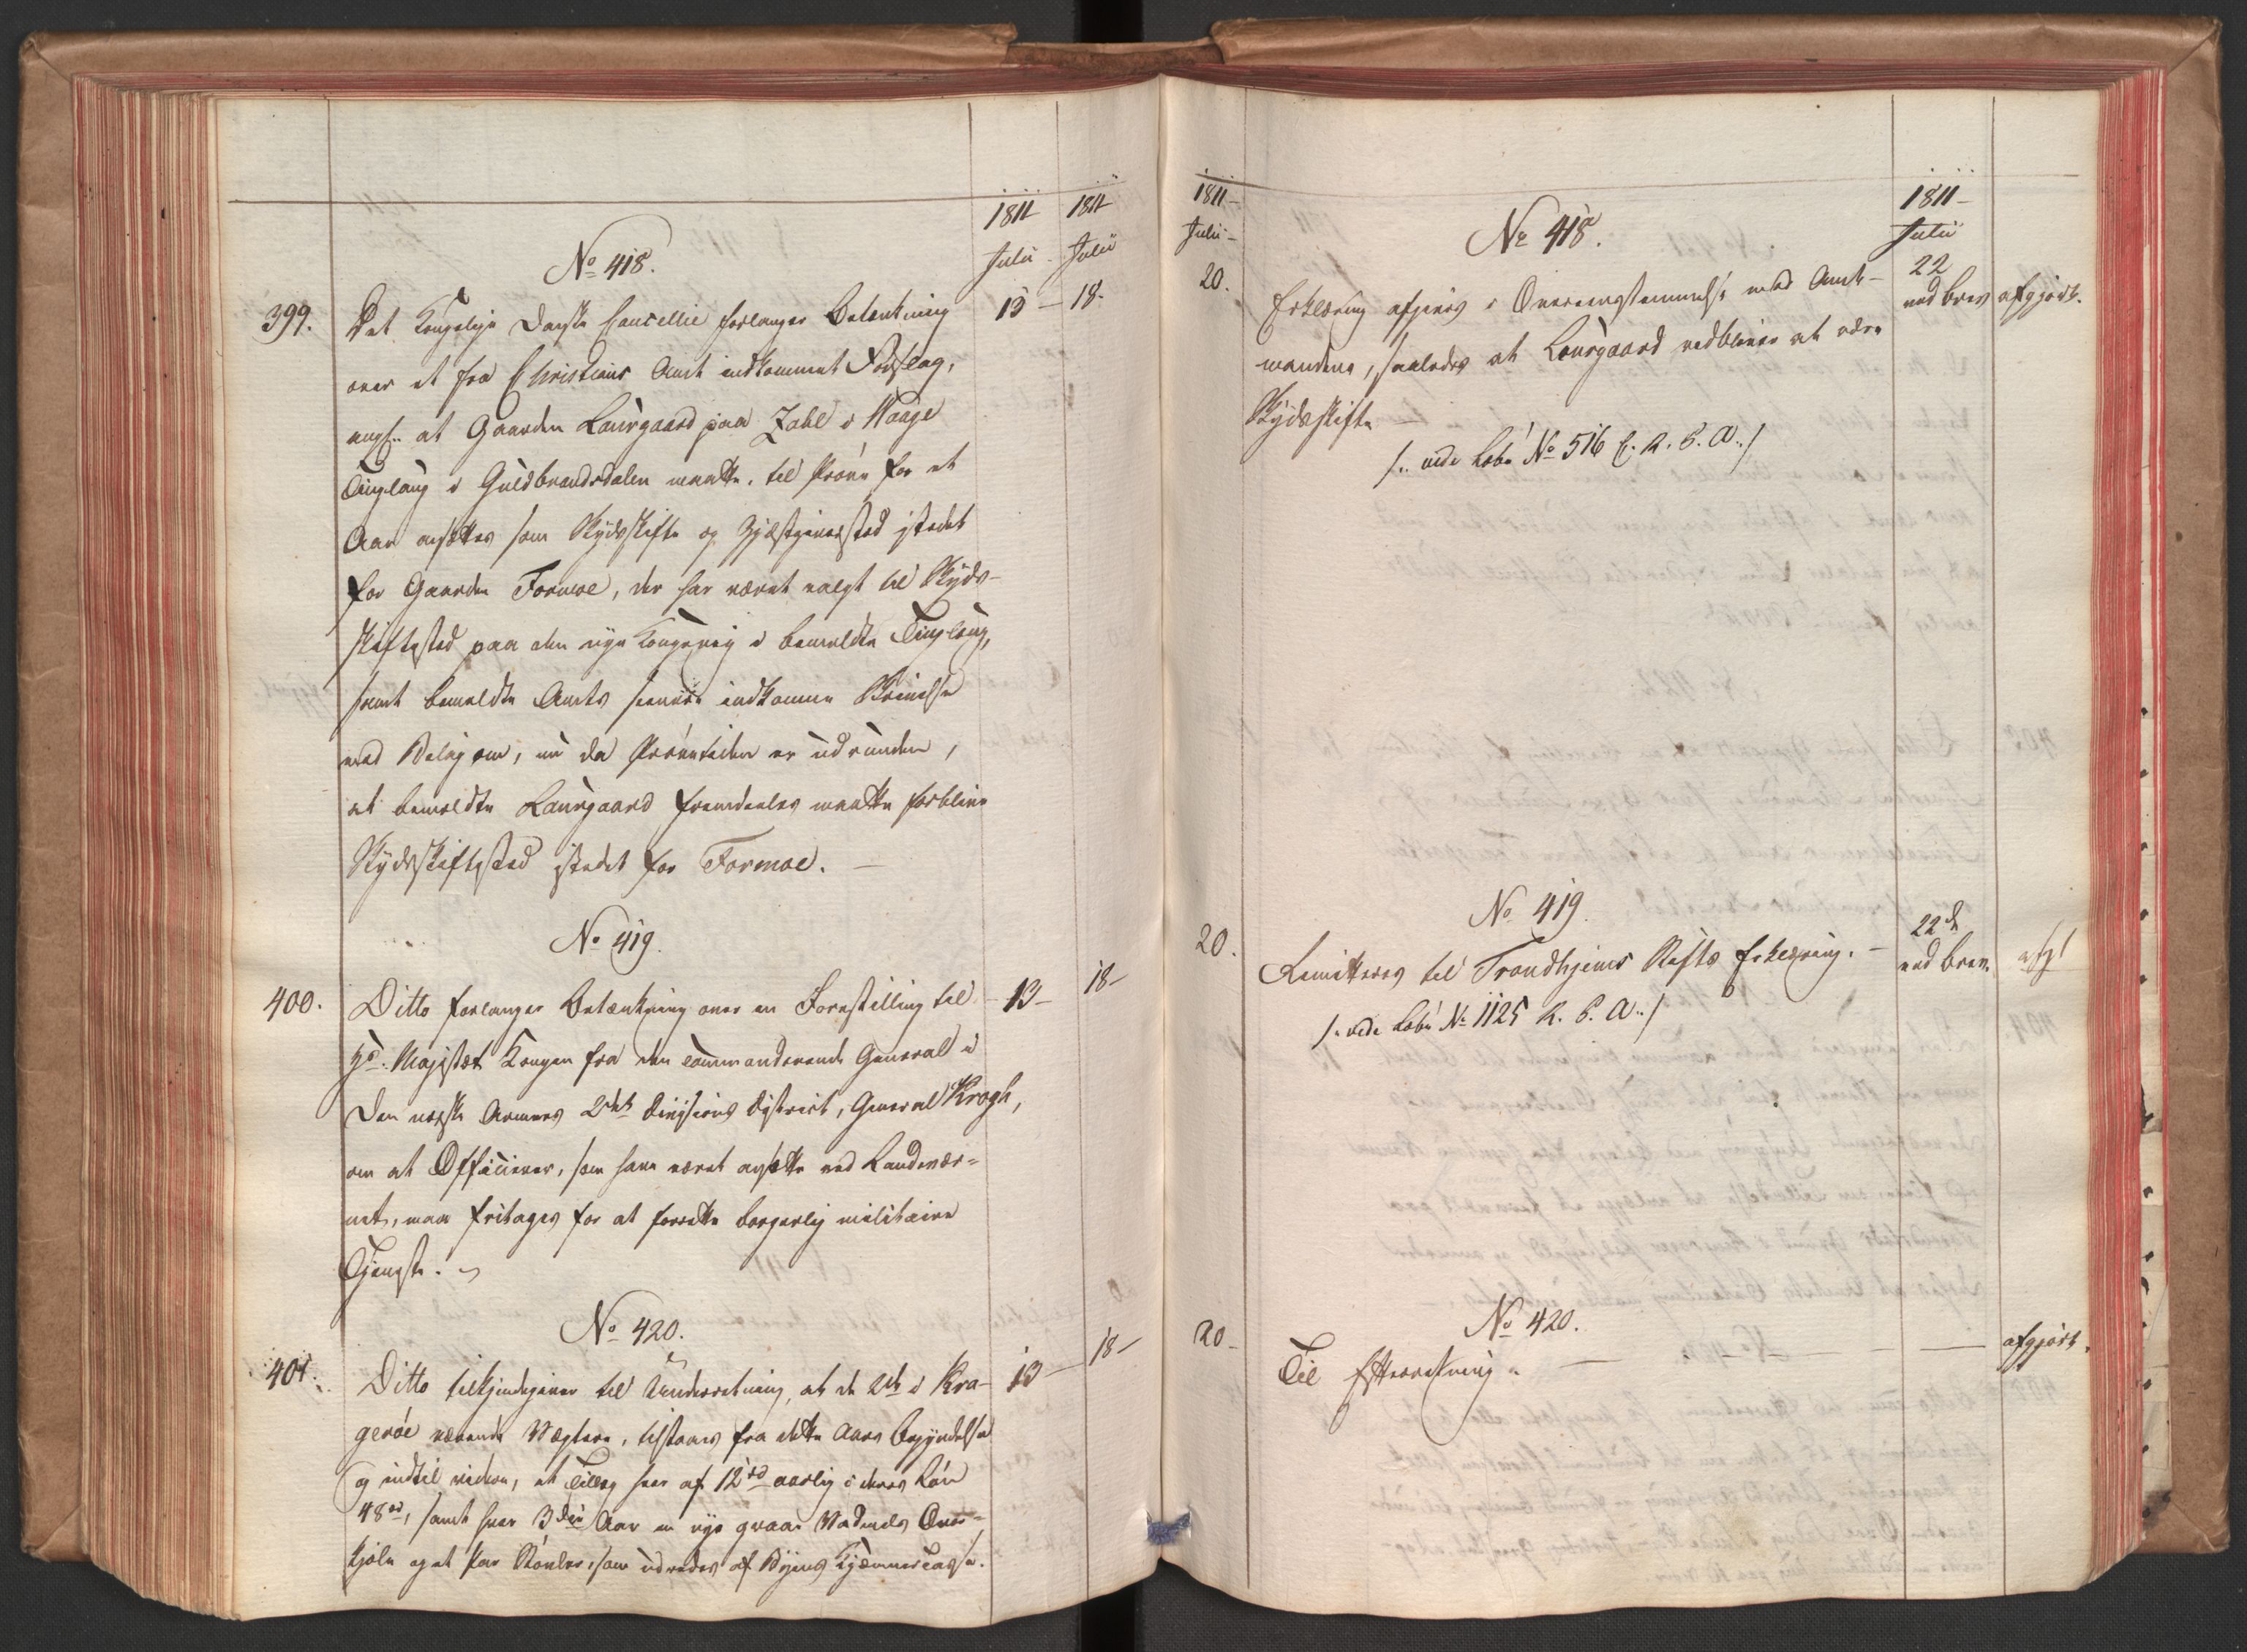 1811 1811
Julii Julii
No 418.
399. Det Kongelige Danske Cancellie forlanger Betænkning 13 — 18.
over et fra Christians Amt indkommet Forslag,
angd. at Gaarden Laurgaard paa Zahl i Waage
Tinglaug i Guldbrandsdalen maatte, til Prøve for et
Aar ansættes som Skydsskifte og Gjæstgiverstad istedet
for Gaarden Formoe, der har været valgt til Skyds-
skiftestad paa den nye Kongevej i bemeldte Tinglaug,
samt bemeldte Amts senere indkomne Skrivelse
med Bilag om, nu da Prøvetiden er udrunden,
at bemeldte Laurgaard fremdeeles maatte forblive
Skydsskiftestad istedet for Formoe. —
No 419.
400. Ditto forlanger Betænkning over en Forestilling til 13 — 18 —
Hs. Majestæt Kongen fra den commanderende General i
den norske Armees 2det Divisions District, General Krogh,
om at Officierer, som have været ansatte ved Landevær-
net, maa fritages for at forrette borgerlig militaire
Tjeneste.
No 420.
401. Ditto tilkjendegiver til Underretning, at de 2de i Kra- 13 — 18 —
gerøe værende Vægtere, tilstaaes fra dette Aars Begyndelse
og indtil videre, et Tillæg hver af 12 rd aarlig i deres Løn
48 rd, samt hver 3die Aar en nye graae Vadmels Over-
kjole og et Par Støvler, som udredes af Byens Kjæmnercasse.
1811 —
Julii —
1811 —
Julii
No 418.
20. Erklæring afgives i Overeensstemmelse med Amt- 22 ved Brev afgjort.
mandens, saaledes at Laurgaard vedbliver at være
Skydsskifte —
/: vide Lobe No 516 C. R. S. A. :/
No 419.
20. Remitteres til Trondhjems Stifts Erklæring. — 22d ved Brev. afgl
/: vide Lobe No 1125 R. S. A. :/
No 420.
20 — Til Efterretning. — — — afgjort.